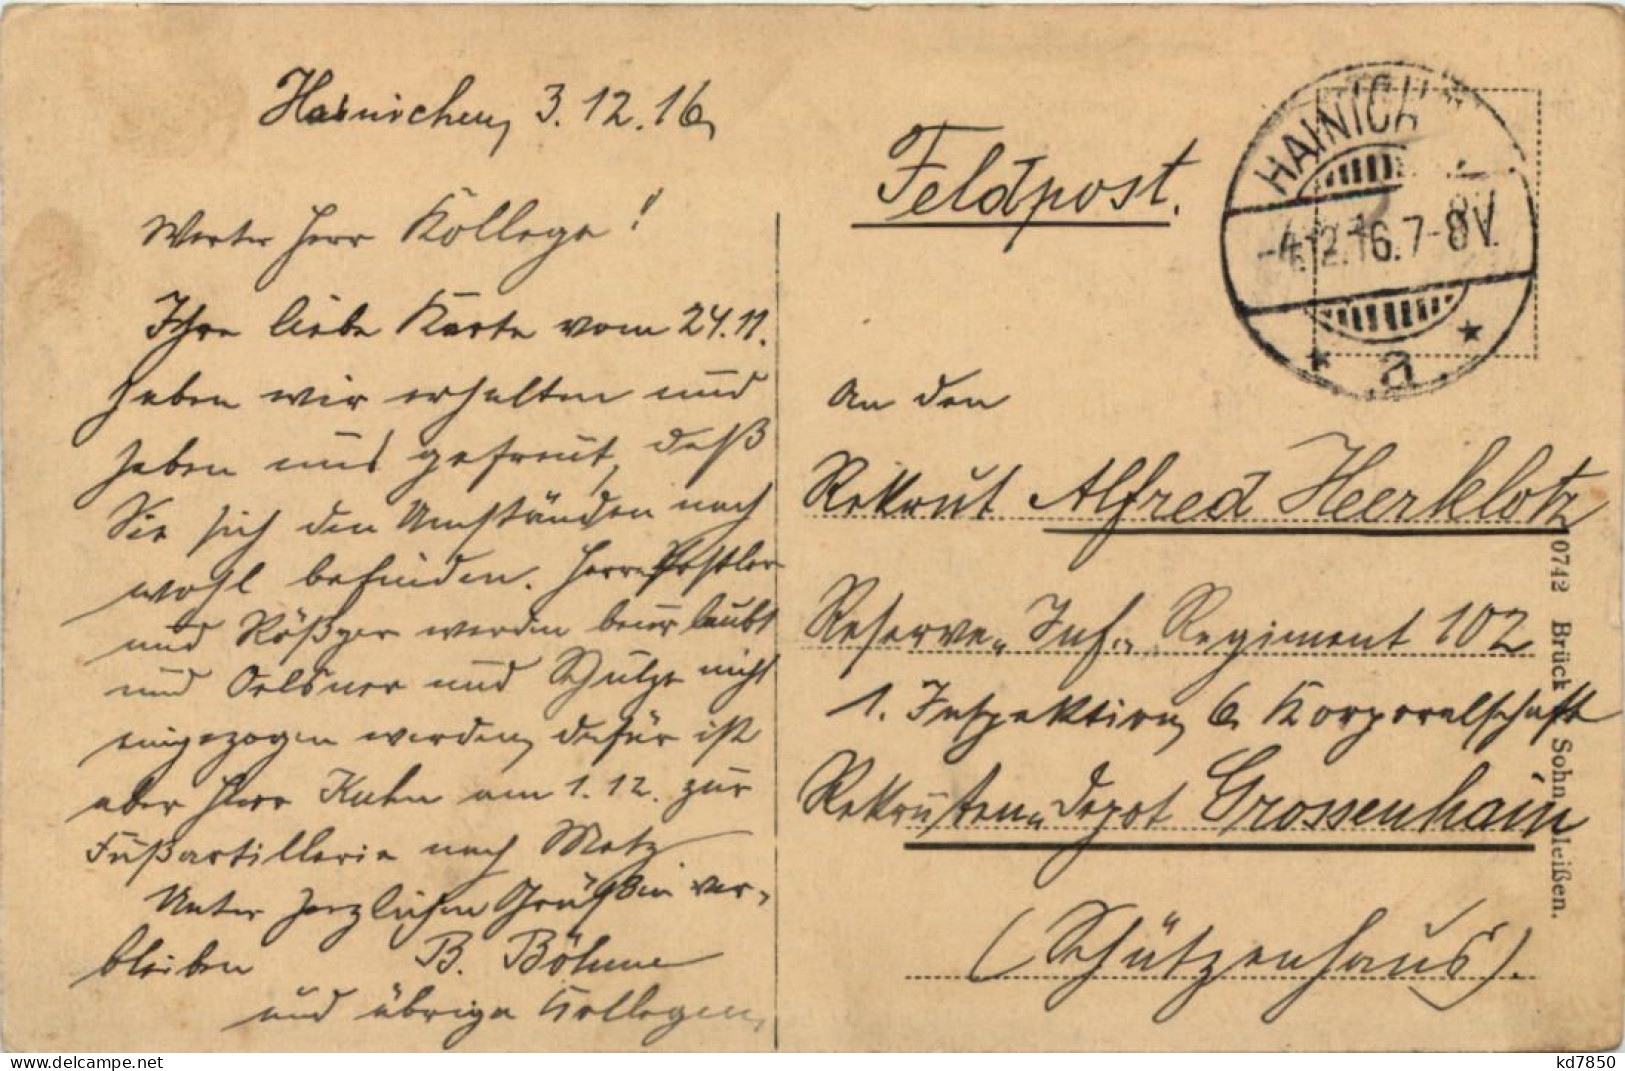 Hainichen, 3.12.16,
Werter Herr Kollege!
Ihre liebe Karte vom 24.11.
haben wir erhalten und
haben uns gefreut, daß
Sie sich den Umständen nach
wohl befinden. Herren Postler
und Rößger werden beurlaubt
und Oelsner und Schulze nicht
eingezogen werden, dafür ist
aber Herr Kuhn am 1.12. zur
Fußartillerie nach Metz
Unter herzlichen Grüßen ver-
bleiben B. Böhme
und übrige Kollegen,
Feldpost.
HAINICHEN
-4.12.16.7-8V.
* a *
An den
Rekrut Alfred Heerklotz
Reserve-Inf.-Regiment 102
1. Inspektion, 6. Korporalschaft
Rekruten-Depot Grossenhain
(Schützenhaus).
10742 Brück & Sohn, Meißen.
www.delcampe.net
kd7850